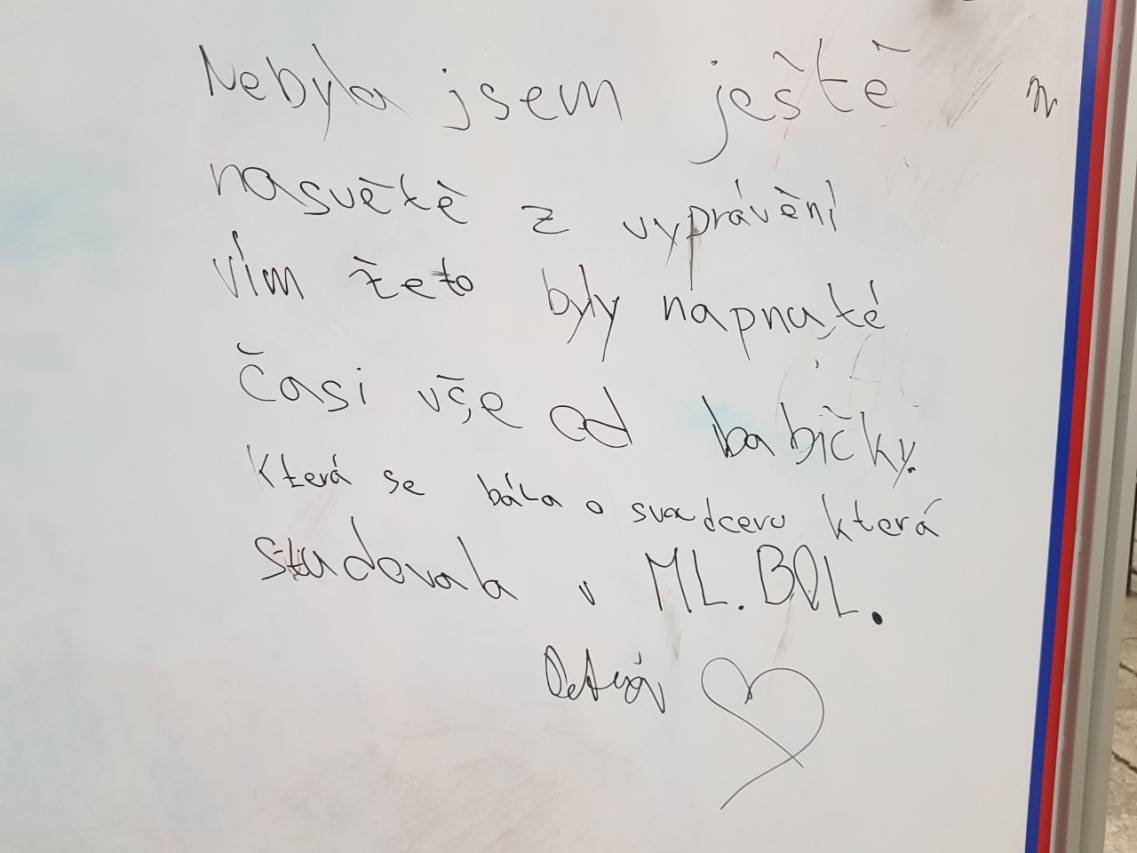 Nebyla jsem ještě
nasvětě z vyprávění
vím žeto byly napnuté
časi vše od babičky.
která se bála o svou dceru která
studovala v ML. BOL.